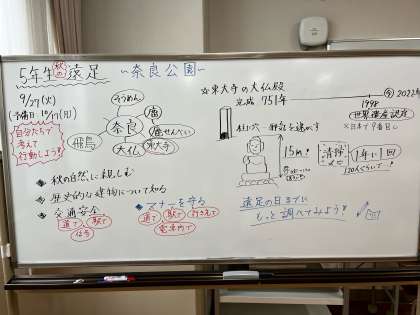 5年生 秋の 遠足 ~奈良公園~
9/27(火)
(予備日:10/17(月))
自分たちで
考えて
行動しよう!!
そうめん
鹿
奈良
鹿せんべい
飛鳥
大仏
東大寺
☆東大寺の大仏殿
完成 751年
今 2022年
1998
世界遺産認定
※日本で9番目
柱に穴
15m!!
清掃
1年に1回
120人ぐらいで!!
◆ 秋の自然に親しむ
◆ 歴史的な建物について知る
◆ 交通安全
道で
駅で
信号
◆ マナーを守る
道で
駅で
行き先で
電車内で
遠足の日までに
もっと調べてみよう!!